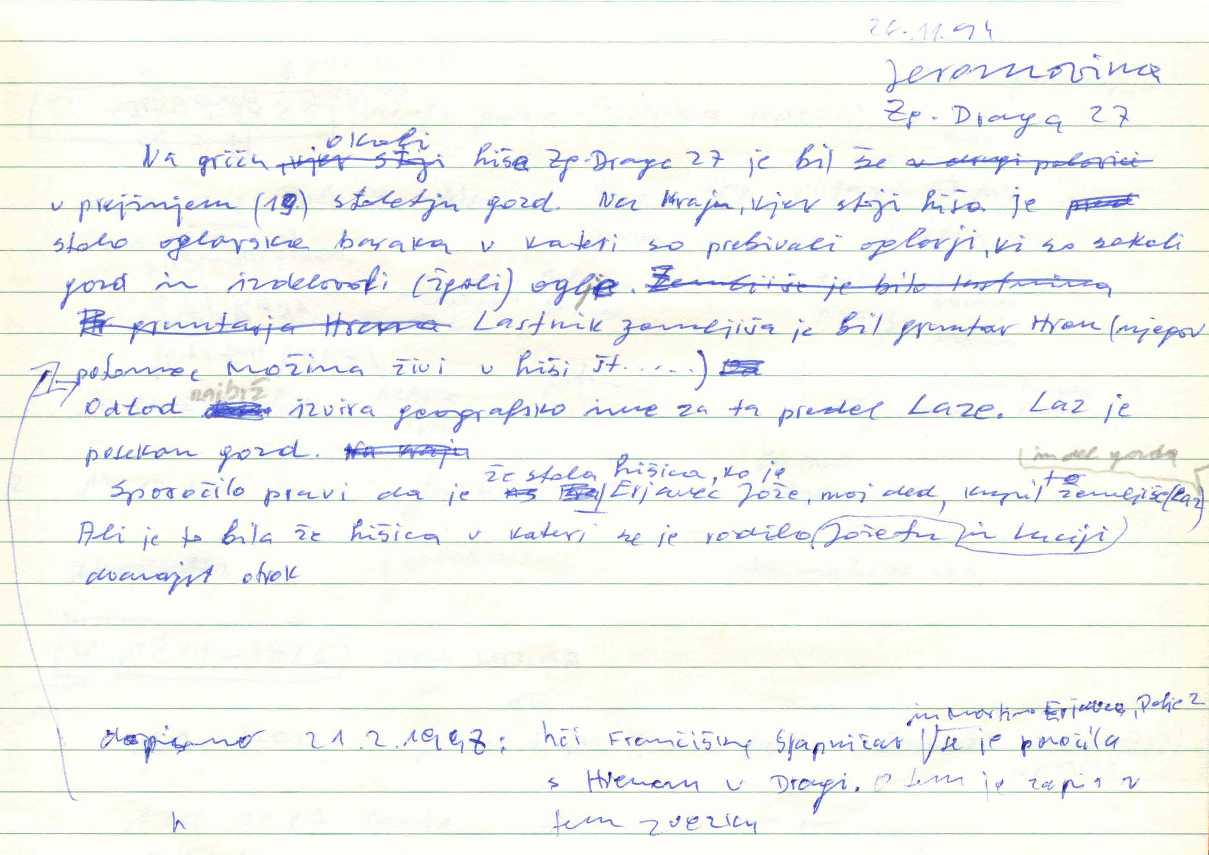 26.11.94
Jeromovina
Zg. Draga 27
okoli
Na griču kjer stoji hiše Zg. Draga 27 je bil še v drugi polovici
v prejšnjem (19.) stoletju gozd. Na kraju, kjer stoji hiša je pred
stala oglarska baraka v kateri so prebivali oglarji, ki so sekali
gozd in izdelovali (žgali) oglje. Zemljišče je bilo lastnina
gruntarja Hrena Lastnik zemljišča je bil gruntar Hren (njegov
potomec Možina živi v hiši št. .....)
najbrž
Odtod izvira geografsko ime za ta predel Laze. Laz je
posekan gozd. Na kraju
že stala hišica, ko je
in del gozda
Sporočilo pravi da je Erjavec Jože, moj ded, kupil to zemljišče (Laz)
Ali je to bila že hišica v kateri se je rodilo (Jožetu in Luciji)
dvanajst otrok
in Martina Erjavca, Polje 2
dopisano 21.2.1997: hči Frančiške Štapničar se je poročila
s Hrenom v Dragi. O tem je zapis v
tem zvezku
h